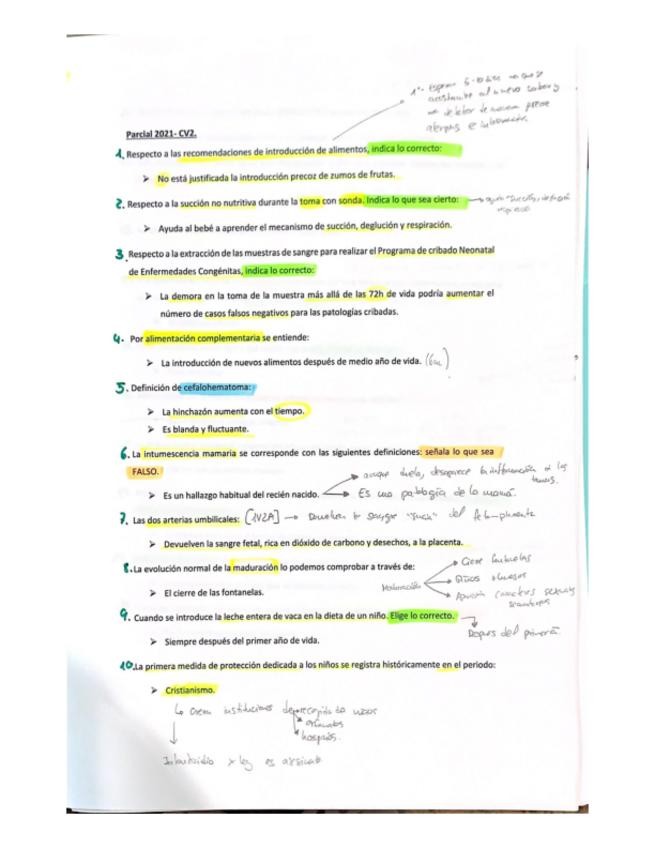 1º- esperar 5-10 días
Parcial 2021- CV2.
1. Respecto a las recomendaciones de introducción de alimentos, indica lo correcto:
➤ No está justificada la introducción precoz de zumos de frutas.
2. Respecto a la succión no nutritiva durante la toma con sonda. Indica lo que sea cierto:
➤ Ayuda al bebé a aprender el mecanismo de succión, deglución y respiración.
3. Respecto a la extracción de las muestras de sangre para realizar el Programa de cribado Neonatal
de Enfermedades Congénitas, indica lo correcto:
➤ La demora en la toma de la muestra más allá de las 72h de vida podría aumentar el
número de casos falsos negativos para las patologías cribadas.
4. Por alimentación complementaria se entiende:
➤ La introducción de nuevos alimentos después de medio año de vida. (6m)
5. Definición de cefalohematoma:
➤ La hinchazón aumenta con el tiempo.
➤ Es blanda y fluctuante.
6. La intumescencia mamaria se corresponde con las siguientes definiciones: señala lo que sea
FALSO.
aunque duela, desaparece la inflamación a las
➤ Es un hallazgo habitual del recién nacido. → Es una patología de la mamá.
7. Las dos arterias umbilicales: [1V2A] → Devuelven la sangre "sucia" del feto-placenta
➤ Devuelven la sangre fetal, rica en dióxido de carbono y desechos, a la placenta.
8. La evolución normal de la maduración lo podemos comprobar a través de:
Maduración
Cierre fontanelas
Aparición caracteres sexuales
secundarios
➤ El cierre de las fontanelas.
9. Cuando se introduce la leche entera de vaca en la dieta de un niño. Elige lo correcto.
Después del primero
➤ Siempre después del primer año de vida.
10. La primera medida de protección dedicada a los niños se registra históricamente en el periodo:
➤ Cristianismo.
↳ Crean instituciones de recogida de niños
orfanatos
hospicios.
Infanticidio x ley es asesinato